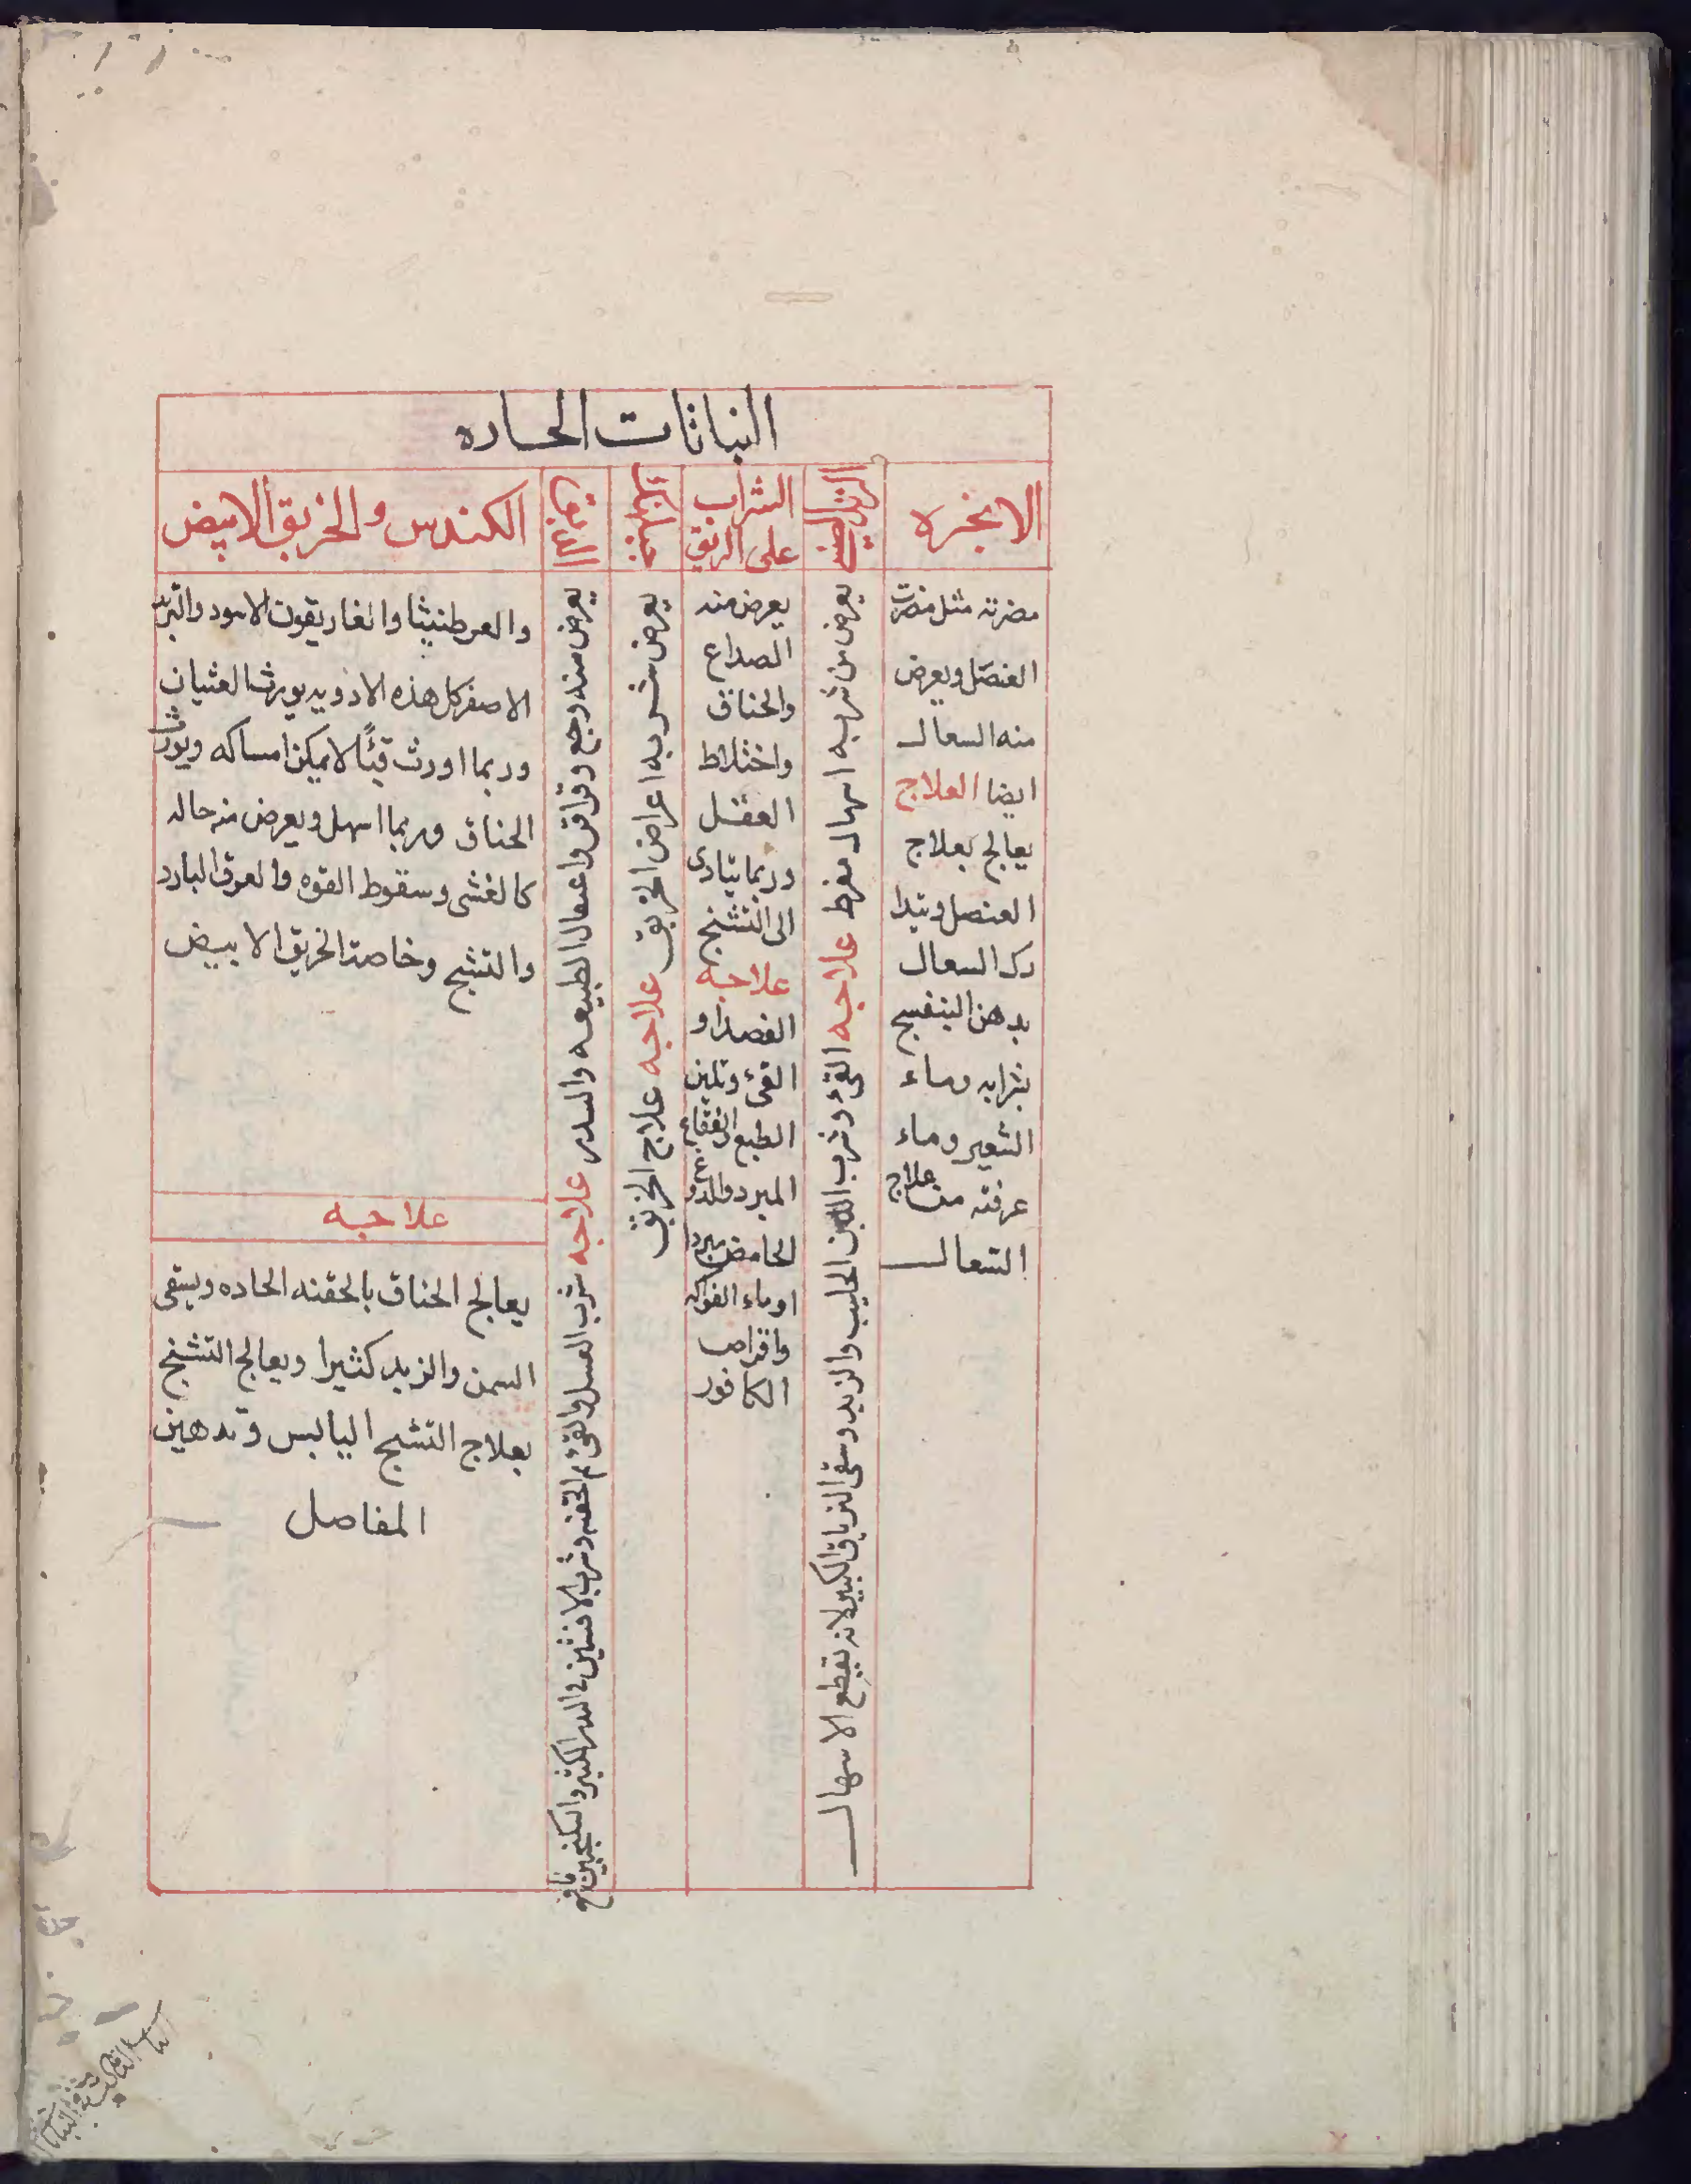 النباتات الحاده
الانجره
مضرته مثل مضرت
العنصل ويعرض
منه السعال
ايضا العلاج
يعالج بعلاج
العنصل ويتدا
رك السعال
بدهن البنفسج
بشرابه وماء
الشعير وماء
عرفته من علاج
السعال
يعرض من شربه اسهال مفرط علاجه القئ وشرب اللبن الحليب والزبد وسقى الترياق الكبير لانه يقطع الاسهال
الشراب
على الريق
يعرض منه
الصداع
والخناق
واختلاط
العقل
وربما يتادى
الى التشنج
علاجه
الفصد او
القئ وتلين
الطبع
المبرد والدوغ
الحامض
او ماء الفواكه
واقراص
الكافور
يعرض من شربه اعراض الخربق علاجه علاج الخربق
يعرض منه وجع وقراقر واعتقال الطبيعه والسدر علاجه شرب العسل والقئ ثم الحقنه وشرب الافسنتين والسكنجبين نافع
الكندس والخربق الابيض
والعرطنيثا والغاريقون الاسود والتربد
الاصفر كل هذه الادويه يورث الغثيان
وربما اورث قيئًا لا يمكن امساكه ويورث
الخناق وربما اسهل ويعرض منه حاله
كالغشى وسقوط القوه والعرق البارد
والتشنج وخاصة الخربق الابيض
علاجه
يعالج الخناق بالحقنه الحاده ويسقى
السمن والزبد كثيرا ويعالج التشنج
بعلاج التشنج اليابس وتدهين
المفاصل